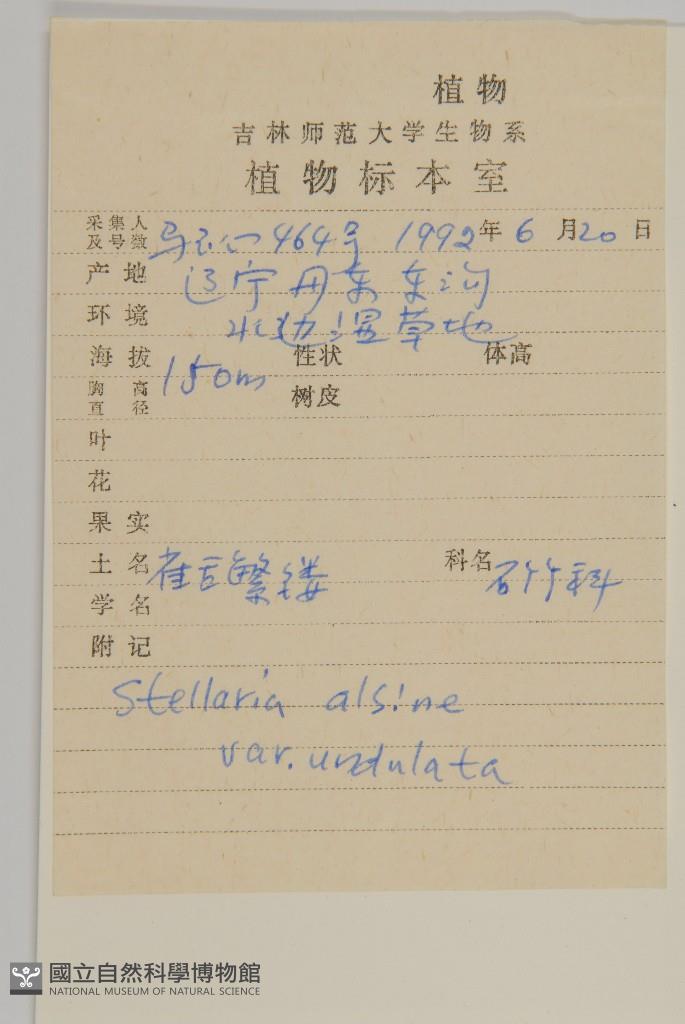 植物
吉林师范大学生物系
植物标本室
采集人及号数 464号 1992年6月20日
产地 辽宁丹东东沟
环境 水边湿草地
海拔 150m 性状 体高
胸高直径 树皮
叶
花
果实
土名 雀舌繁缕 科名 石竹科
学名
附记
Stellaria alsine
var. undulata
國立自然科學博物館
NATIONAL MUSEUM OF NATURAL SCIENCE